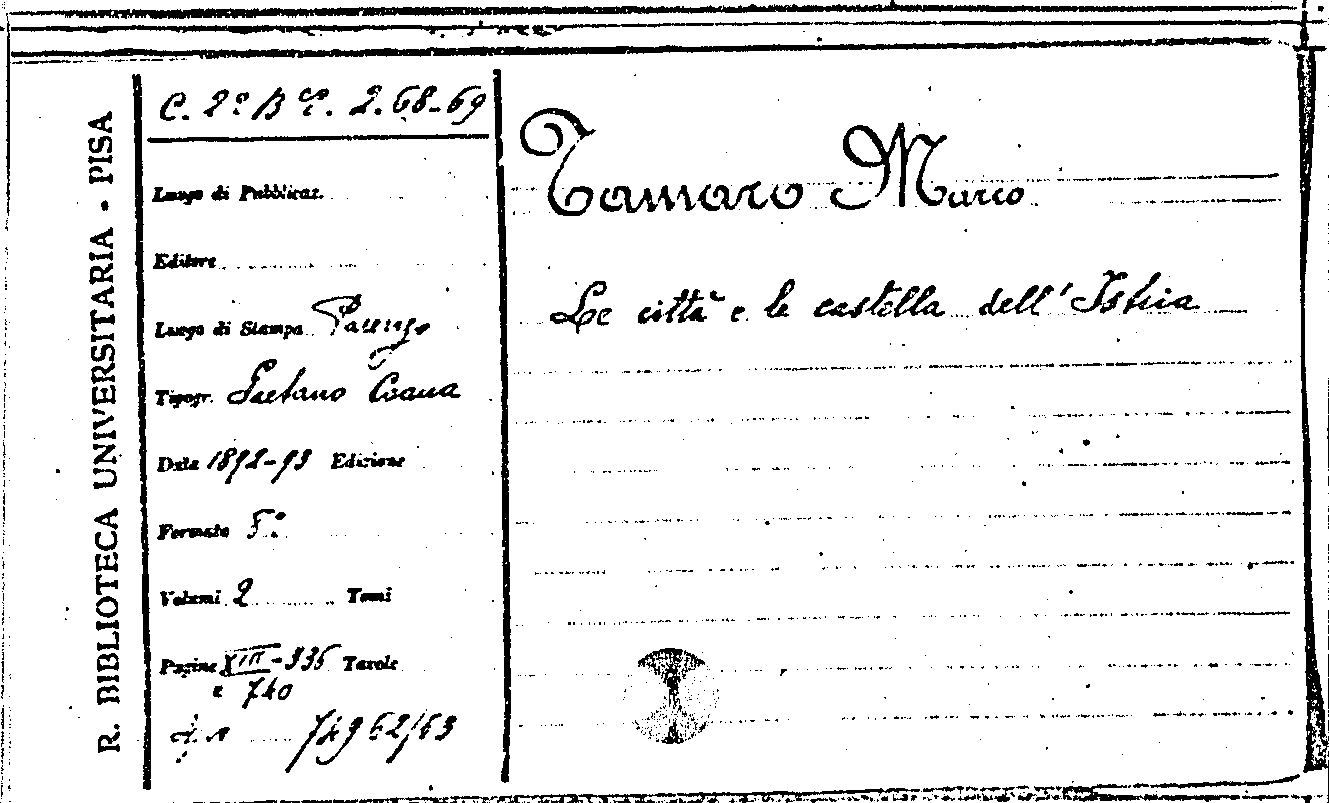 R. BIBLIOTECA UNIVERSITARIA - PISA
C. 2º B 2. 68-69
Luogo di Pubblicaz.
Editore
Luogo di Stampa Parenzo
Tipogr. Gaetano Coana
Data 1892-93 Edizione
Formato 5º
Volumi 2 Tomi
Pagine XIII-335 Tavole
e 740
74962/63
Tamaro Marco
Le città e le castella dell'Istria